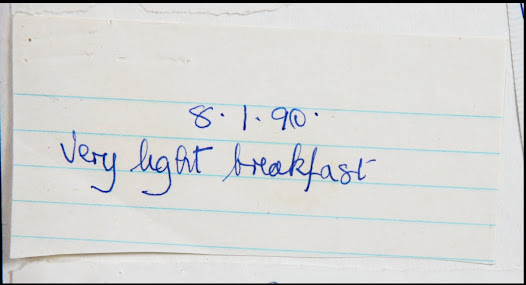 8.1.90.
Very light breakfast